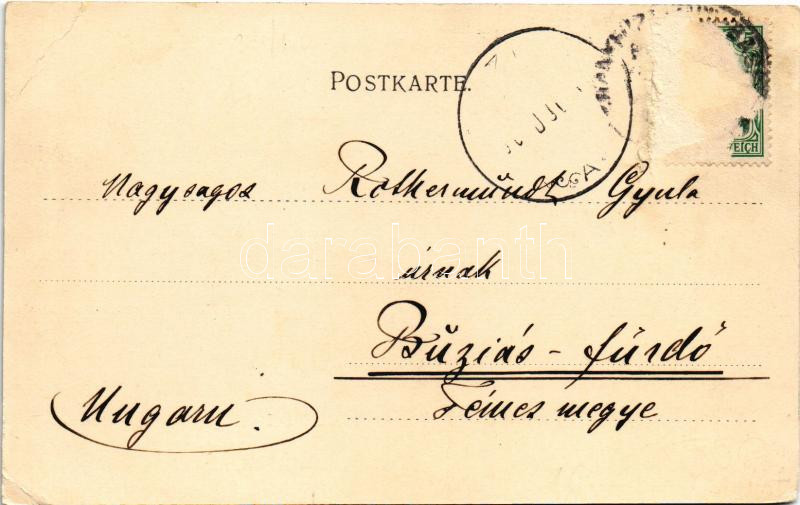 POSTKARTE.
EICH
Nagysagos Rothermundt Gyula
úrnak
Búziás-fürdő
Temes megye
Ungarn.
darabanth